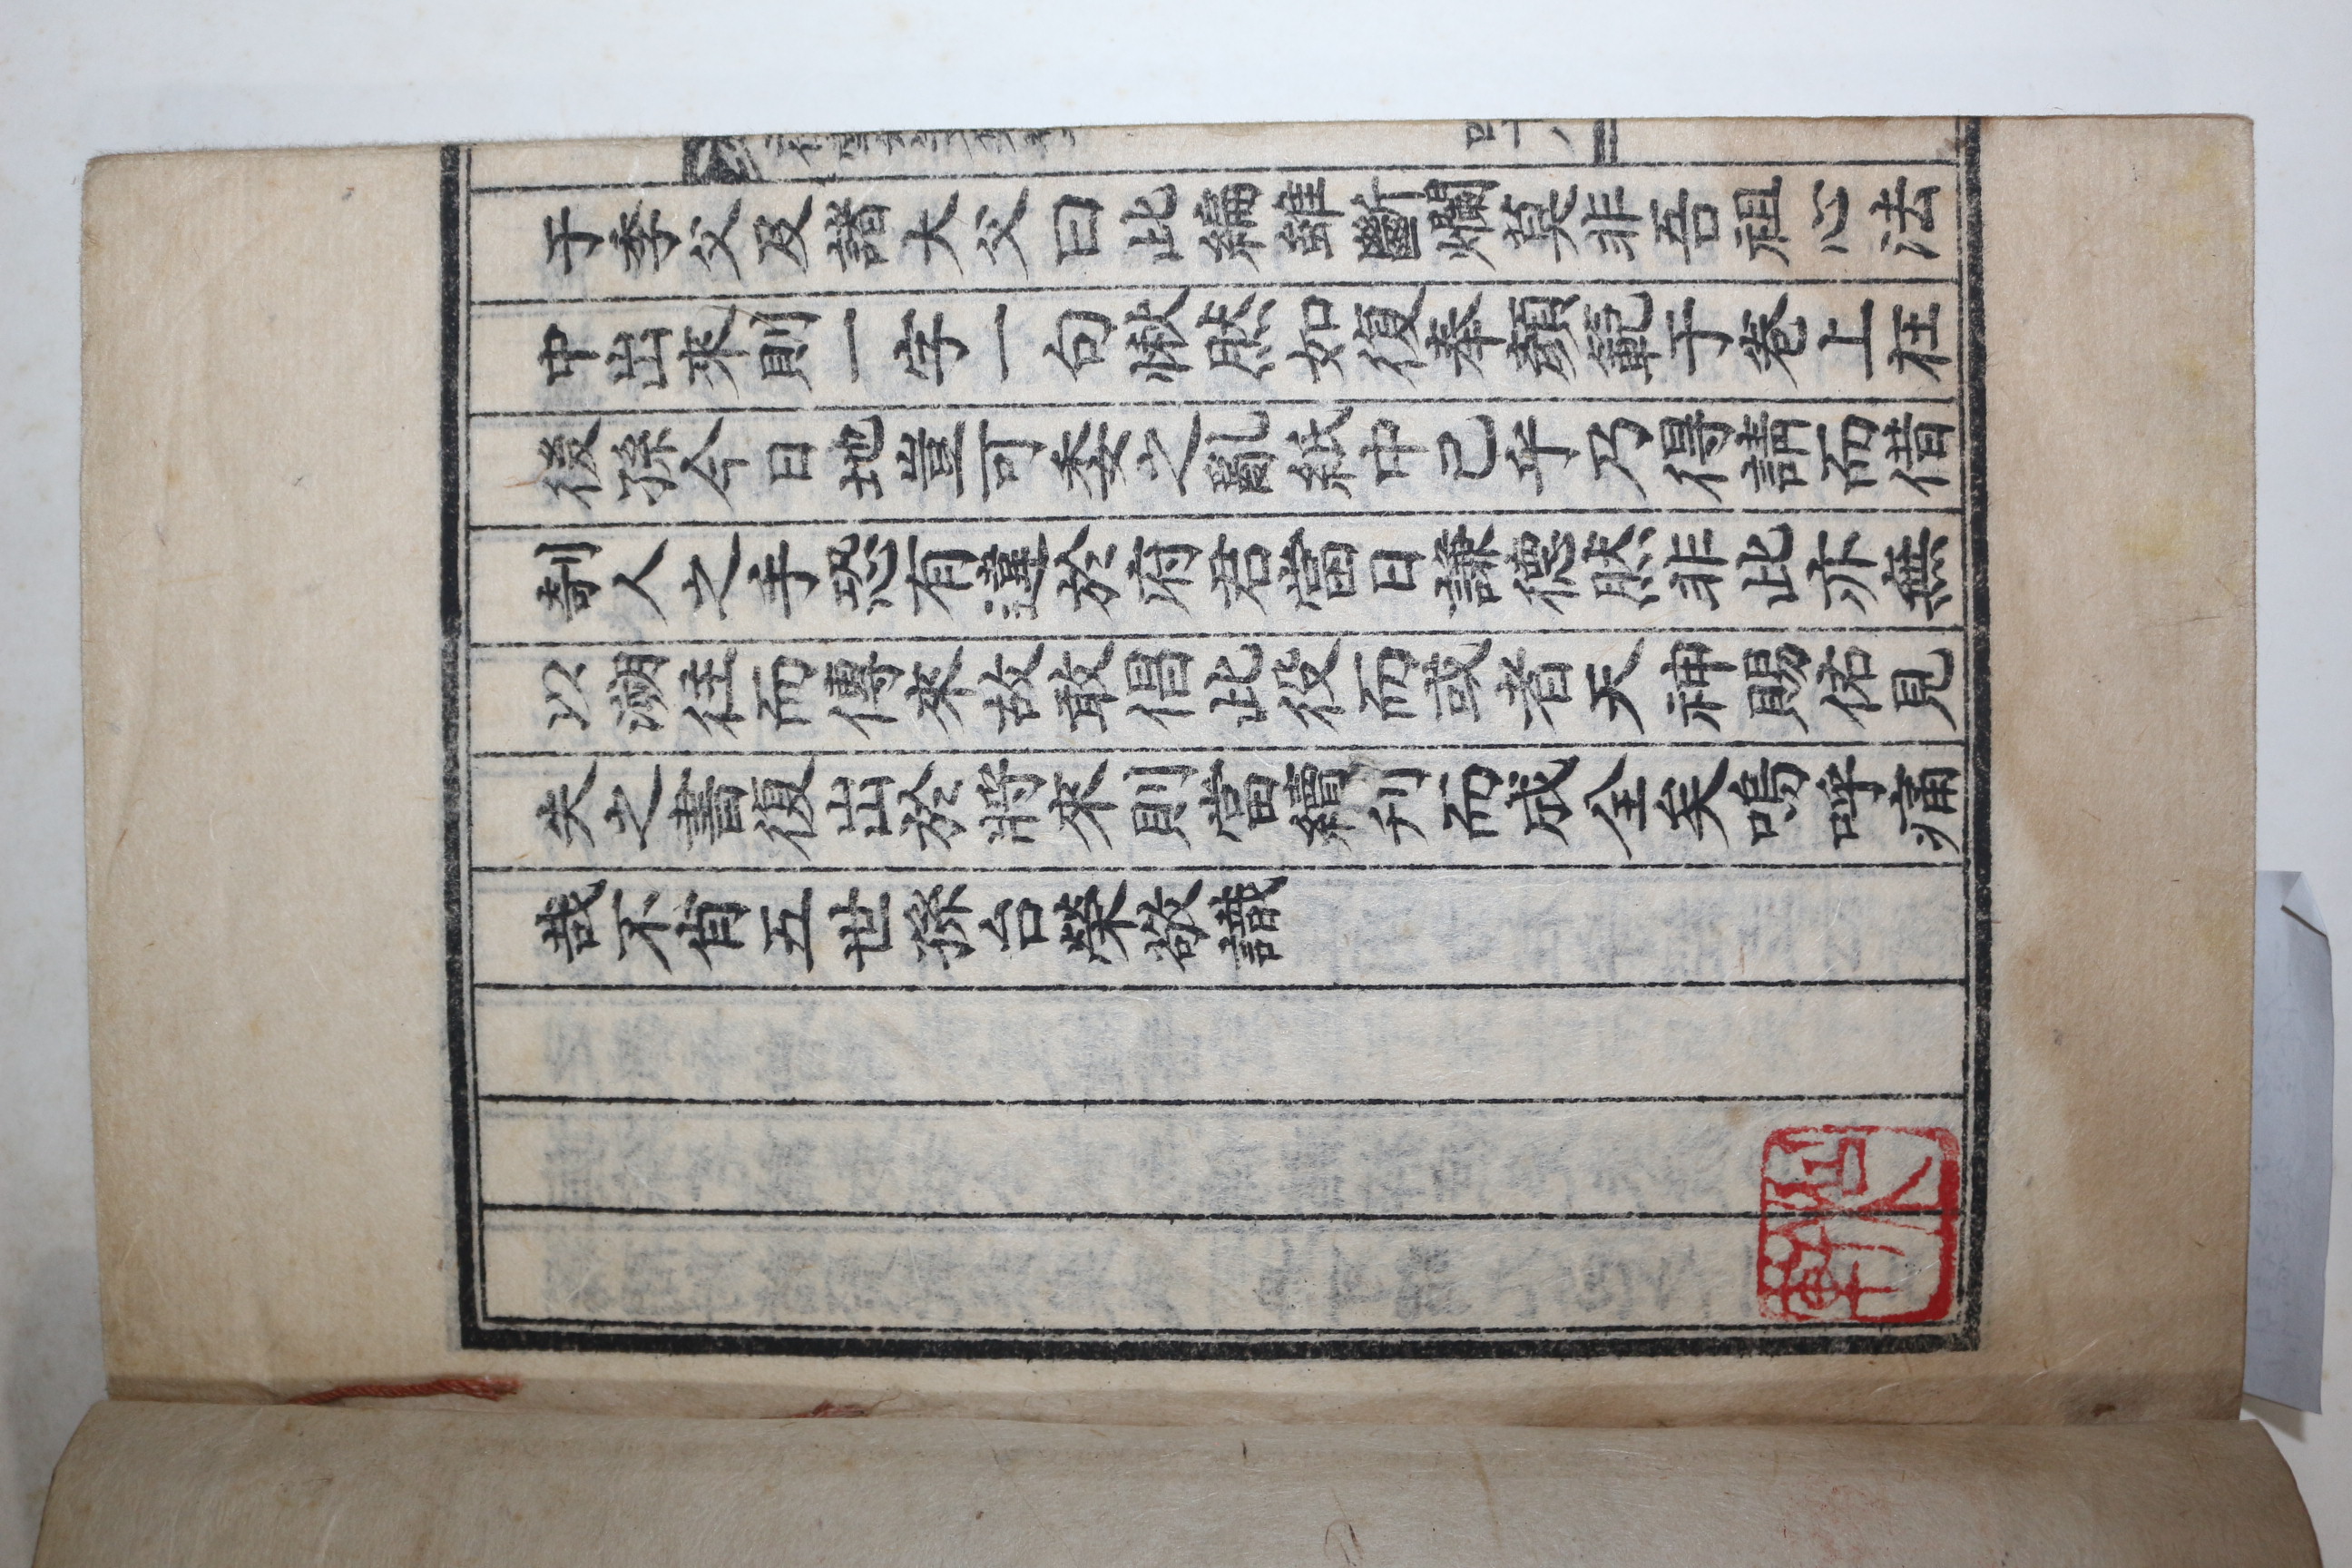 于季父及諸大父曰此編雖斷爛莫非吾祖心法
中出來則一字一句愀然如復奉頖範于卷上在
後孫今日地豈可委之亂紙中已乎乃得請而借
剞人之手恐有違於府君當日謙德然非此亦無
以溯往而傳來故敢倡此役而或者天神賜佑見
失之書復出於將來則當續刋而成全矣嗚呼痛
哉不肖五世孫台榮敬識